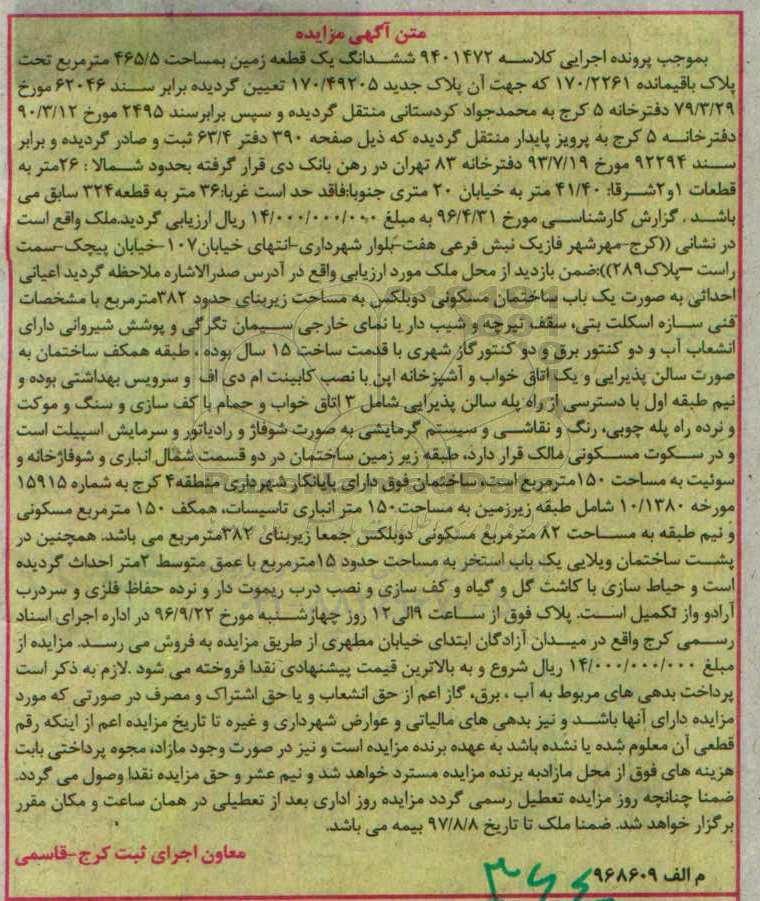 متن آگهی مزایده
بموجب پرونده اجرایی کلاسه ۹۴۰۱۴۷۲ ششدانگ یک قطعه زمین بمساحت ۴۶۵/۵ مترمربع تحت
پلاک باقیمانده ۱۷۰/۲۲۶۱ که جهت آن پلاک جدید ۱۷۰/۴۹۲۰۵ تعیین گردیده برابر سند ۶۲۰۴۶ مورخ
۷۹/۳/۲۹ دفترخانه ۵ کرج به محمدجواد کردستانی منتقل گردیده و سپس برابرسند ۲۴۹۵ مورخ ۹۰/۳/۱۲
دفترخانه ۵ کرج به پرویز پایدار منتقل گردیده که ذیل صفحه ۳۹۰ دفتر ۶۳/۴ ثبت و صادر گردیده و برابر
سند ۹۲۲۹۴ مورخ ۹۳/۷/۱۹ دفترخانه ۸۳ تهران در رهن بانک دی قرار گرفته بحدود شمالا : ۲۶متر به
قطعات ۱و۲شرقا: ۴۱/۴۰ متر به خیابان ۲۰ متری جنوبا:فاقد حد است غربا:۳۶ متر به قطعه۳۲۴ سابق می
باشد . گزارش کارشناسی مورخ ۹۶/۴/۳۱ به مبلغ ۱۴/۰۰۰/۰۰۰/۰۰۰ ریال ارزیابی گردید.ملک واقع است
در نشانی ((کرج-مهرشهر فازیک نبش فرعی هفت-بلوار شهرداری-انتهای خیابان۱۰۷-خیابان پیچک-سمت
راست –پلاک۲۸۹)):ضمن بازدید از محل ملک مورد ارزیابی واقع در آدرس صدرالاشاره ملاحظه گردید اعیانی
احداثی به صورت یک باب ساختمان مسکونی دوبلکس به مساحت زیربنای حدود ۳۸۲مترمربع با مشخصات
فنی سازه اسکلت بتی، سقف تیرچه و شیب دار یا نمای خارجی سیمان تگرگی و پوشش شیروانی دارای
انشعاب آب و دو کنتور برق و دو کنتورگاز شهری با قدمت ساخت ۱۵ سال بوده ، طبقه همکف ساختمان به
صورت سالن پذیرایی و یک اتاق خواب و آشپزخانه اپن با نصب کابینت ام دی اف و سرویس بهداشتی بوده و
نیم طبقه اول با دسترسی از راه پله سالن پذیرایی شامل ۳ اتاق خواب و حمام با کف سازی و سنگ و موکت
و نرده راه پله چوبی، رنگ و نقاشی و سیستم گرمایشی به صورت شوفاژ و رادیاتور و سرمایش اسپیلت است
و در سکوت مسکونی مالک قرار دارد، طبقه زیر زمین ساختمان در دو قسمت شمال انباری و شوفاژخانه و
سوئیت به مساحت ۱۵۰مترمربع است، ساختمان فوق دارای پایانکار شهرداری منطقه۴ کرج به شماره ۱۵۹۱۵
مورخه ۱۰/۱۳۸۰ شامل طبقه زیرزمین به مساحت ۱۵۰ متر انباری تاسیسات، همکف ۱۵۰ مترمربع مسکونی
و نیم طبقه به مساحت ۸۲ مترمربع مسکونی دوبلکس جمعا زیربنای ۳۸۲مترمربع می باشد. همچنین در
پشت ساختمان ویلایی یک باب استخر به مساحت حدود ۱۵مترمربع با عمق متوسط ۲متر احداث گردیده
است و حیاط سازی با کاشت گل و گیاه و کف سازی و نصب درب ریموت دار و نرده حفاظ فلزی و سردرب
آرادو واز تکمیل است. پلاک فوق از ساعت ۹الی۱۲ روز چهارشنبه مورخ ۹۶/۹/۲۲ در اداره اجرای اسناد
رسمی کرج واقع در میدان آزادگان ابتدای خیابان مطهری از طریق مزایده به فروش می رسد. مزایده از
مبلغ ۱۴/۰۰۰/۰۰۰/۰۰۰ ریال شروع و به بالاترین قیمت پیشنهادی نقدا فروخته می شود .لازم به ذکر است
پرداخت بدهی های مربوط به آب ، برق، گاز اعم از حق انشعاب و یا حق اشتراک و مصرف در صورتی که مورد
مزایده دارای آنها باشد و نیز بدهی های مالیاتی و عوارض شهرداری و غیره تا تاریخ مزایده اعم از اینکه رقم
قطعی آن معلوم شده یا نشده باشد به عهده برنده مزایده است و نیز در صورت وجود مازاد، مجوه پرداختی بابت
هزینه های فوق از محل مازادبه برنده مزایده مسترد خواهد شد و نیم عشر و حق مزایده نقدا وصول می گردد.
ضمنا چنانچه روز مزایده تعطیل رسمی گردد مزایده روز اداری بعد از تعطیلی در همان ساعت و مکان مقرر
برگزار خواهد شد. ضمنا ملک تا تاریخ ۹۷/۸/۸ بیمه می باشد.
معاون اجرای ثبت کرج-قاسمی
م الف ۹۶۸۶۰۹